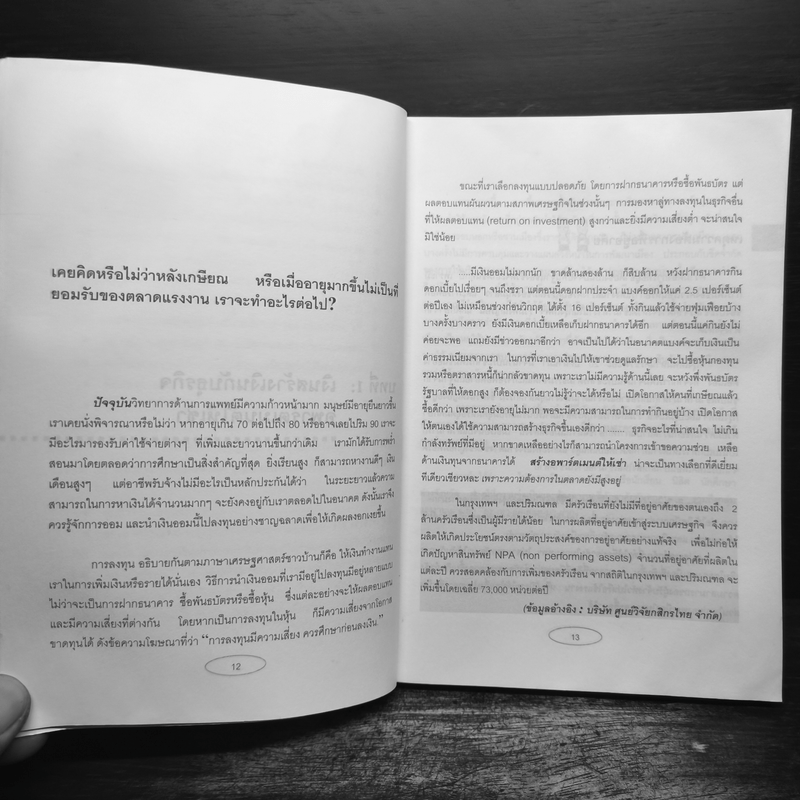 เคยคิดหรือไม่ว่าหลังเกษียณ หรือเมื่ออายุมากขึ้นไม่เป็นที่
ยอมรับของตลาดแรงงาน เราจะทำอะไรต่อไป?
ปัจจุบันวิทยาการด้านการแพทย์มีความก้าวหน้ามาก มนุษย์มีอายุยืนยาวขึ้น
เราเคยนั่งพิจารณาหรือไม่ว่า หากอายุเกิน 70 ต่อไปถึง 80 หรืออาจเลยไปริม 90 เราจะ
มีอะไรมารองรับค่าใช้จ่ายต่างๆ ที่เพิ่มและยาวนานขึ้นกว่าเดิม เรามักได้รับการพร่ำ
สอนมาโดยตลอดว่าการศึกษาเป็นสิ่งสำคัญที่สุด ยิ่งเรียนสูง ก็สามารถหางานดีๆ เงิน
เดือนสูงๆ แต่อาชีพรับจ้างไม่มีอะไรเป็นหลักประกันได้ว่า ในระยะยาวแล้วความ
สามารถในการหาเงินได้จำนวนมากๆ จะยังคงอยู่กับเราตลอดไปในอนาคต ดังนั้นเราจึง
ควรรู้จักการออม และนำเงินออมนี้ไปลงทุนอย่างชาญฉลาดเพื่อให้เกิดผลงอกเงยขึ้น
การลงทุน อธิบายกันตามภาษาเศรษฐศาสตร์ชาวบ้านก็คือ ให้เงินทำงานแทน
เราในการเพิ่มเงินหรือรายได้นั่นเอง วิธีการนำเงินออมที่เรามีอยู่ไปลงทุนมีอยู่หลายแบบ
ไม่ว่าจะเป็นการฝากธนาคาร ซื้อพันธบัตรหรือซื้อหุ้น ซึ่งแต่ละอย่างจะให้ผลตอบแทน
และมีความเสี่ยงที่ต่างกัน โดยหากเป็นการลงทุนในหุ้น ก็มีความเสี่ยงจากโอกาส
ขาดทุนได้ ดังข้อความโฆษณาที่ว่า “การลงทุนมีความเสี่ยง ควรศึกษาก่อนลงเงิน”
12
ขณะที่เราเลือกลงทุนแบบปลอดภัย โดยการฝากธนาคารหรือซื้อพันธบัตร แต่
ผลตอบแทนผันผวนตามสภาพเศรษฐกิจในช่วงนั้นๆ การมองหาลู่ทางลงทุนในธุรกิจอื่น
ที่ให้ผลตอบแทน (return on investment) สูงกว่าและยิ่งมีความเสี่ยงต่ำ จะน่าสนใจ
มิใช่น้อย
....มีเงินออมไม่มากนัก ขาดล้านสองล้าน ก็สิบล้าน หวังฝากธนาคารกิน
ดอกเบี้ยไปเรื่อยๆ จนถึงชรา แต่ตอนนี้ดอกฝากประจำ แบงค์ออกให้แค่ 2.5 เปอร์เซ็นต์
ต่อปีเอง ไม่เหมือนช่วงก่อนวิกฤต ได้ตั้ง 16 เปอร์เซ็นต์ ทั้งกินแล้วใช้จ่ายฟุ่มเฟือยบ้าง
บางครั้งบางคราว ยังมีเงินดอกเบี้ยเหลือเก็บฝากธนาคารได้อีก แต่ตอนนี้แค่กินยังไม่
ค่อยจะพอ แถมยังมีข่าวออกมาอีกว่า อาจเป็นไปได้ว่าในอนาคตแบงค์จะเก็บเงินเป็น
ค่าธรรมเนียมจากเรา ในการที่เราเอาเงินไปให้เขาช่วยดูแลรักษา จะไปซื้อหุ้นกองทุน
รวมหรือตราสารหนี้ก็น่ากลัวขาดทุน เพราะเราไม่มีความรู้ด้านนี้เลย จะหวังพึ่งพันธบัตร
รัฐบาลที่ให้ดอกสูง ก็ต้องจองกันยาวไม่รู้ว่าจะได้หรือไม่ เปิดโอกาสให้คนที่เกษียณแล้ว
ซื้อดีกว่า เพราะเรายังอายุไม่มาก พอจะมีความสามารถในการทำกินอยู่บ้าง เปิดโอกาส
ให้ตนเองได้ใช้ความสามารถสร้างธุรกิจขึ้นเองดีกว่า ....... ธุรกิจอะไรที่น่าสนใจ ไม่เกิน
กำลังทรัพย์ที่มีอยู่ หากขาดเหลืออย่างไรก็สามารถนำโครงการเข้าขอความช่วย เหลือ
ด้านเงินทุนจากธนาคารได้ สร้างอพาร์ตเมนต์ให้เช่า น่าจะเป็นทางเลือกที่ดีเยี่ยม
ทีเดียวเชียวหละ เพราะความต้องการในตลาดยังมีสูงอยู่
ในกรุงเทพฯ และปริมณฑล มีครัวเรือนที่ยังไม่มีที่อยู่อาศัยของตนเองถึง 2
ล้านครัวเรือนซึ่งเป็นผู้มีรายได้น้อย ในการผลิตที่อยู่อาศัยเข้าสู่ระบบเศรษฐกิจ จึงควร
ผลิตให้เกิดประโยชน์ตรงตามวัตถุประสงค์ของการอยู่อาศัยอย่างแท้จริง เพื่อไม่ก่อให้
เกิดปัญหาสินทรัพย์ NPA (non performing assets) จำนวนที่อยู่อาศัยที่ผลิตใน
แต่ละปี ควรสอดคล้องกับการเพิ่มของครัวเรือน จากสถิติในกรุงเทพฯ และปริมณฑล จะ
เพิ่มขึ้นโดยเฉลี่ย 73,000 หน่วยต่อปี
(ข้อมูลอ้างอิง : บริษัท ศูนย์วิจัยกสิกรไทย จำกัด)
13